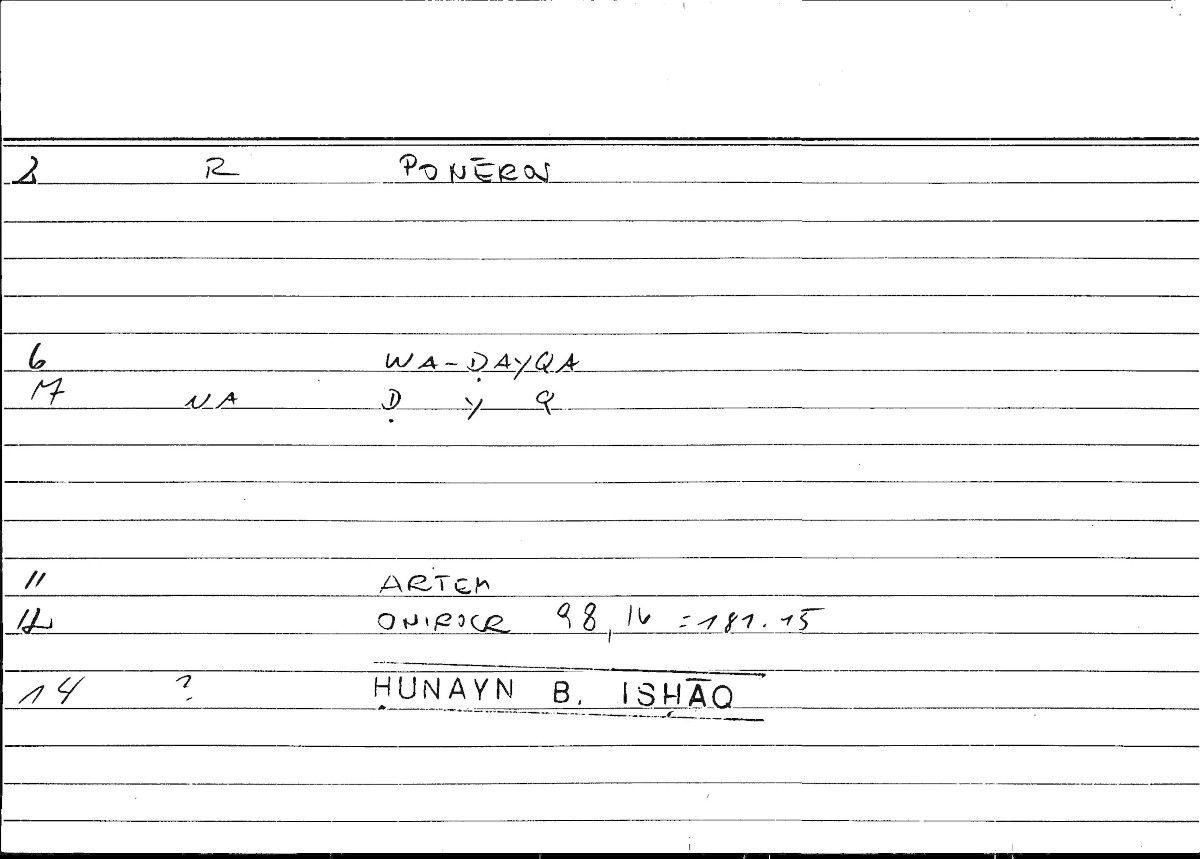 2 R PONĒROS
6 WA-ḌAYQA
17 NA Ḍ Y Q
11 ARTEM
12 ONIROCR 98,16 =181.15
14 ? ḤUNAYN B. ISḤĀQ